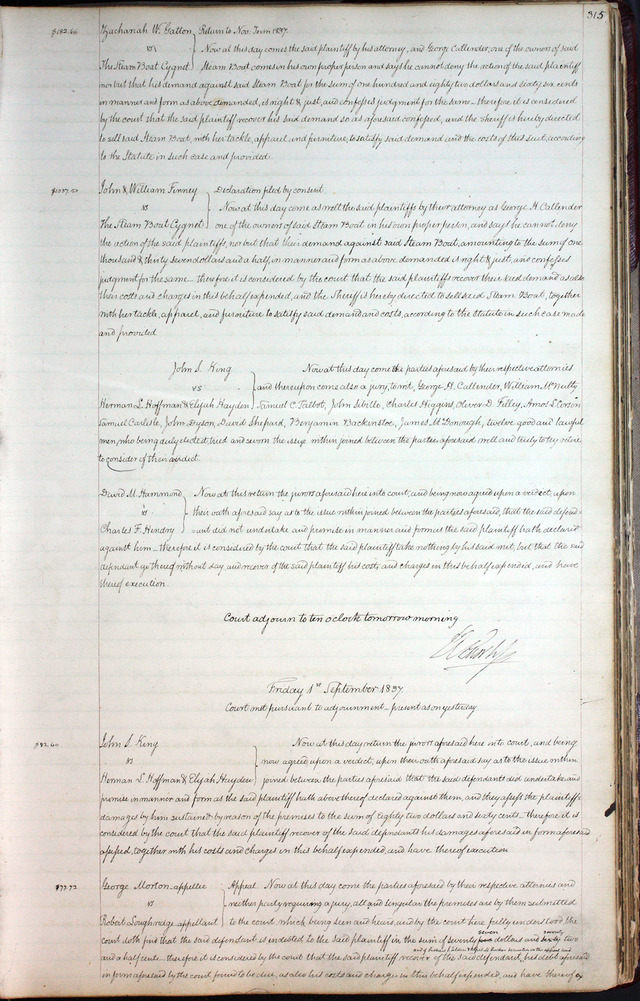 315
$182.66 Zachariah W. Gatton Return to Nov. Term 1837.
vs Now at this day comes the said plaintiff by his attorney, and George Callender, one of the owners of said
The Steam Boat Cygnet Steam Boat comes in his own proper person and says he cannot deny the action of the said plaintiff
nor but that his demand against said Steam Boat for the sum of one hundred and eighty two dollars and sixty six cents
in manner and form as above demanded, is right & just, and confesses judgment for the same – therefore it is considered
by the court that the said plaintiff recover his said demand so as aforesaid confessed, and the Sheriff is hereby directed
to sell said Steam Boat, with her tackle, apparel and furniture, to satisfy said demand and the costs of this suit, according
to the Statute in such case and provided.
$1037.50 John & William Finney Declaration filed by consent
vs Now at this day come as well the said plaintiffs by their attorney as George H. Callender
The Steam Boat Cygnet one of the owners of said Steam Boat in his own proper person, and says he cannot deny
the action of the said plaintiffs, nor but that their demand against said Steam Boat, amounting to the sum of one
thousand & thirty seven dollars and a half, in manner and form as above demanded is right & just, and confesses
judgment for the same – therefore it is considered by the court that the said plaintiffs recover their said demand as also
their costs and charges in this behalf expended, and the Sheriff is hereby directed to sell said Steam Boat, together
with her tackle, apparel, and furniture to satisfy said demand and costs, according to the Statute in such case made
and provided
John S. King Now at this day come the parties aforesaid by their respective attornies
vs and thereupon come also a jury, to wit, George H. Callender, William McNulty
Herman L. Hoffman & Elijah Hayden Samuel C. Talbot, John Sibille, Charles Higgins, Oliver D. Filley, Amos L. Corson
Samuel Carlisle, John Dyson, David Shepard, Benjamin Backenstoe, James McDonough, twelve good and lawful
men, who being duly elected, tried and sworn the issue within joined between the parties aforesaid well and truly to try retire
to consider of their verdict.
David M. Hammond Now at this return the jurors aforesaid here into court, and being now agreed upon a verdict, upon
vs their oath aforesaid say as to the issue within joined between the parties aforesaid, that the said defend-
Charles F. Hendry ant did not undertake and promise in manner and form as the said plaintiff hath declared
against him – therefore it is considered by the court that the said plaintiff take nothing by his said writ, but that the said
defendant go thereof without day, and recover of the said plaintiff his costs and charges in this behalf expended, and have
thereof execution.
Court adjourn to ten oclock tomorrow morning
Friday 1st September 1837.
Court met pursuant to adjournment – present as on yesterday.
$82.60 John S. King Now at this day return the jurors aforesaid here into court, and being
vs now agreed upon a verdict, upon their oath aforesaid say as to the issue within
Herman L. Hoffman & Elijah Hayden joined between the parties aforesaid that the said defendants did undertake and
promise in manner and form as the said plaintiff hath above thereof declared against them, and they assess the plaintiffs
damages by him sustained by reason of the premises to the sum of Eighty two dollars and sixty cents. therefore it is
considered by the court that the said plaintiff recover of the said defendants his damages aforesaid in form aforesaid
assessed, together with his costs and charges in this behalf expended, and have thereof execution
$77.72 George Morton appellee Appeal Now at this day come the parties aforesaid by their respective attornies and
vs neither party requiring a jury, all and singular the premises are by them submitted
Robert Loughridge appellant to the court, which being seen and heard, and by the court here fully understood, the
court doth find that the said defendant is indebted to the said plaintiff in the sum of seventy seven dollars and seventy two
and a half cents – therefore it is considered by the court that the said plaintiff recover of the said defendant, his debt aforesaid
in form aforesaid by the court found to be due, as also his costs and charges in this behalf expended, and have thereof ex